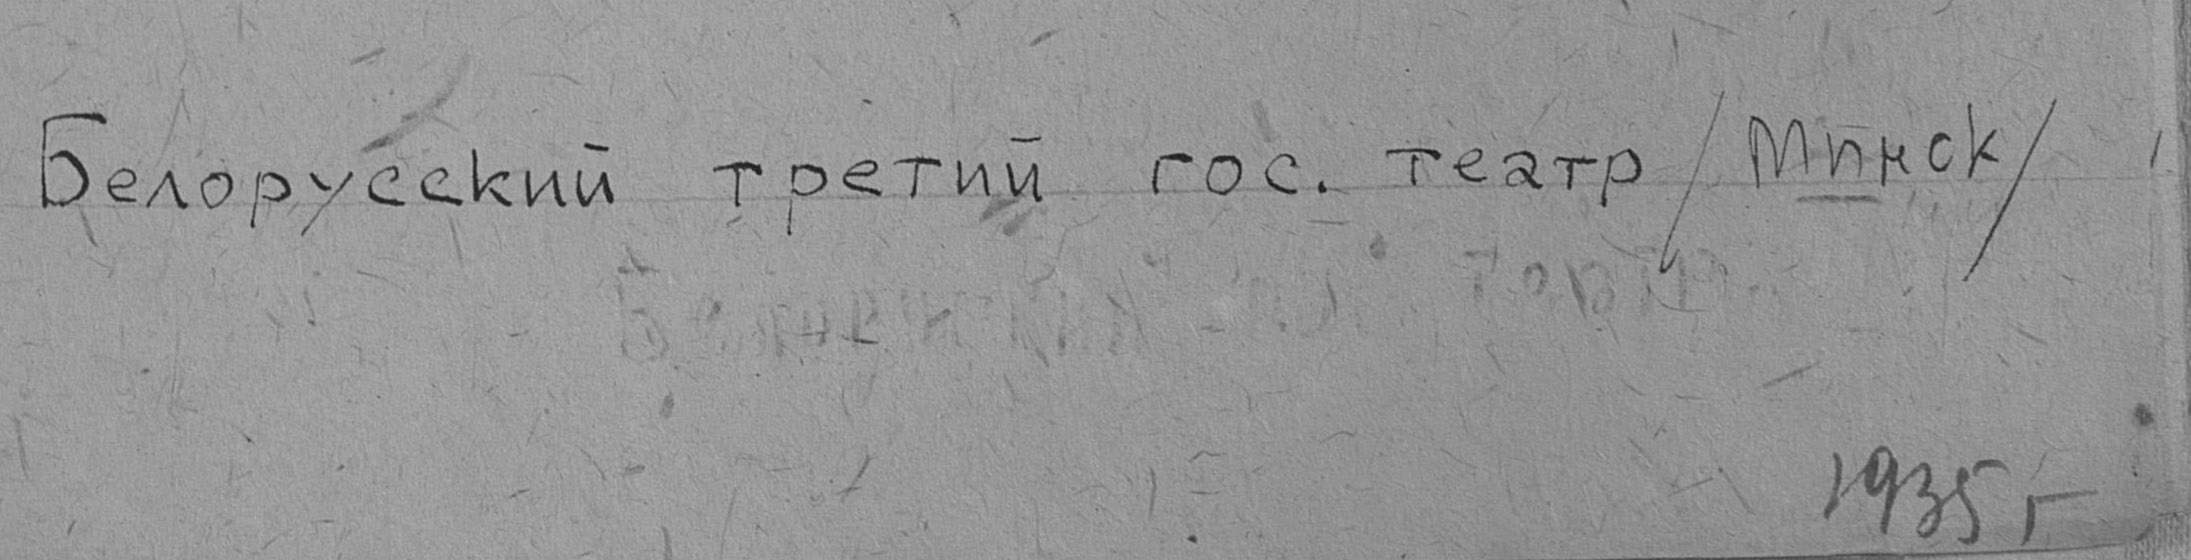 Белорусский третий гос. театр /Минск/
1935 г